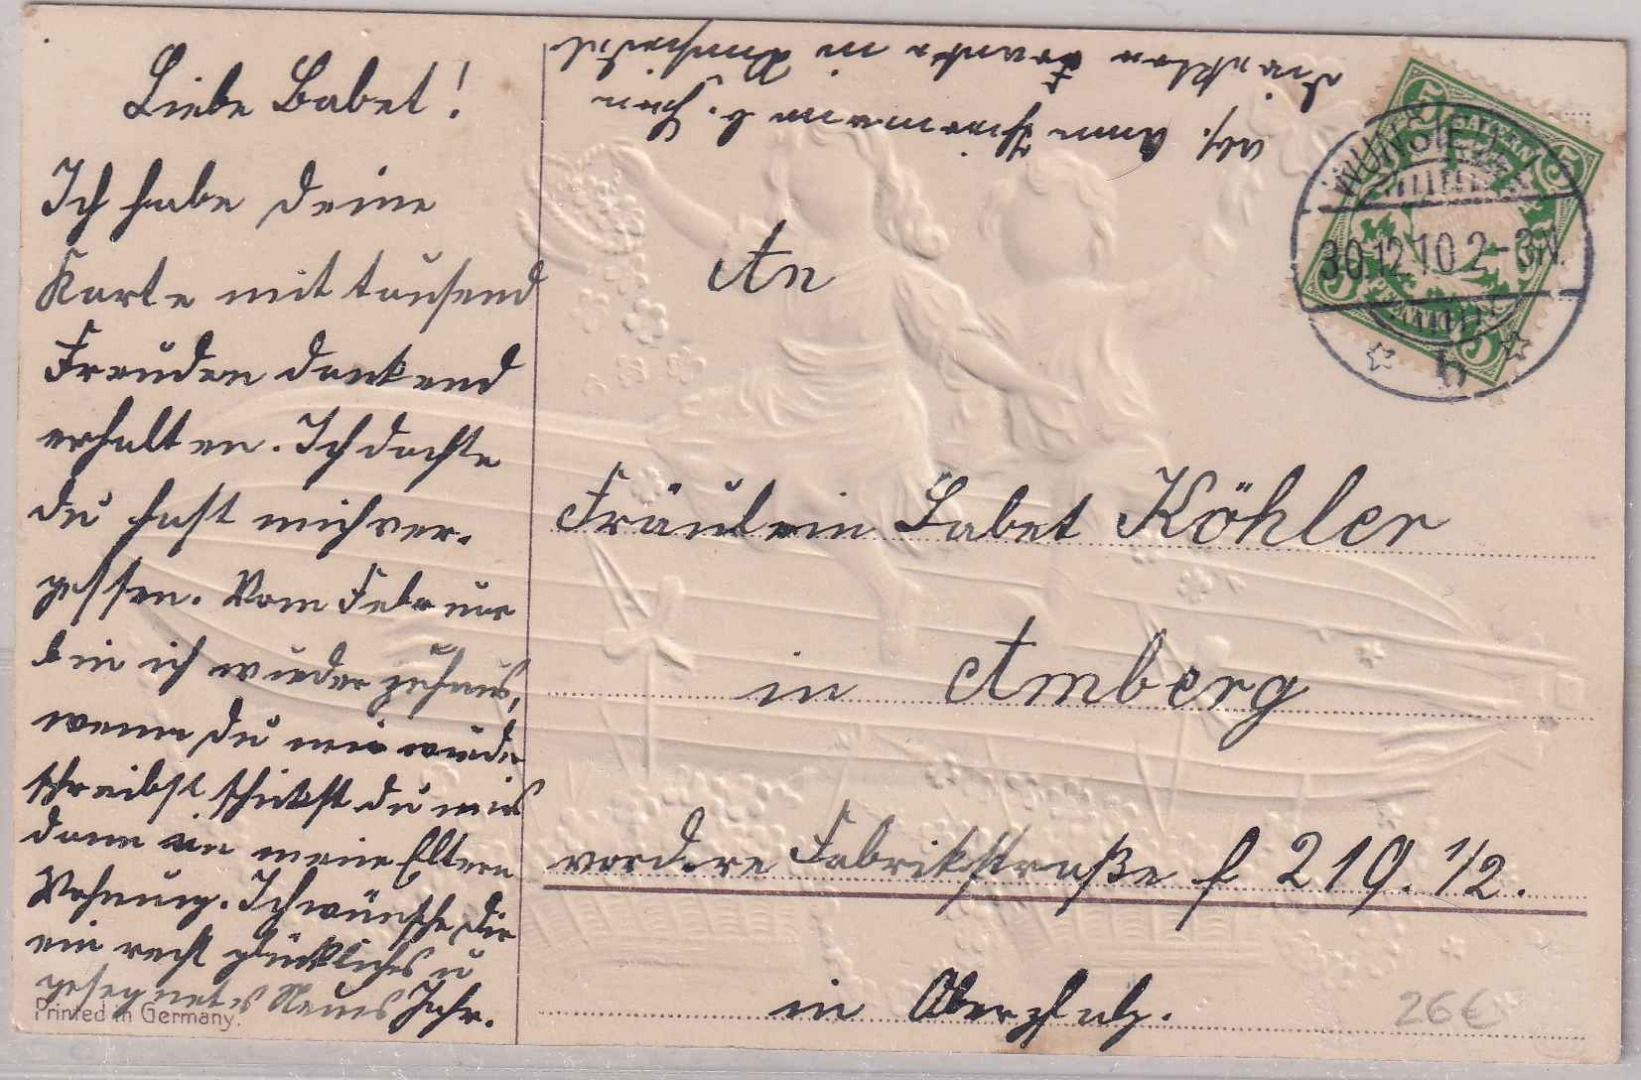 Liebe Babet!
Ich habe deine
Karte mit tausend
Freuden dankend
erhalten. Ich dachte
du hast mich ver-
gessen. Vom Februar
bin ich wieder zuhaus,
wenn du mir wieder
schreibst schickst du mirs
dann in meine Eltern
Wohnung. Ich wünsche Dir
ein recht glückliches u
gesegnetes Neues Jahr.
Printed in Germany.
Abs. Anna b.
Direktor in Wunsiedel
WUNSIEDEL
30.12.10 2-3N.
b
BAYERN
5
5
5
5
An
Fräulein Babet Köhler
in Amberg
vordere Fabrikstraße f 219. 1/2.
in Oberpfalz.
26€